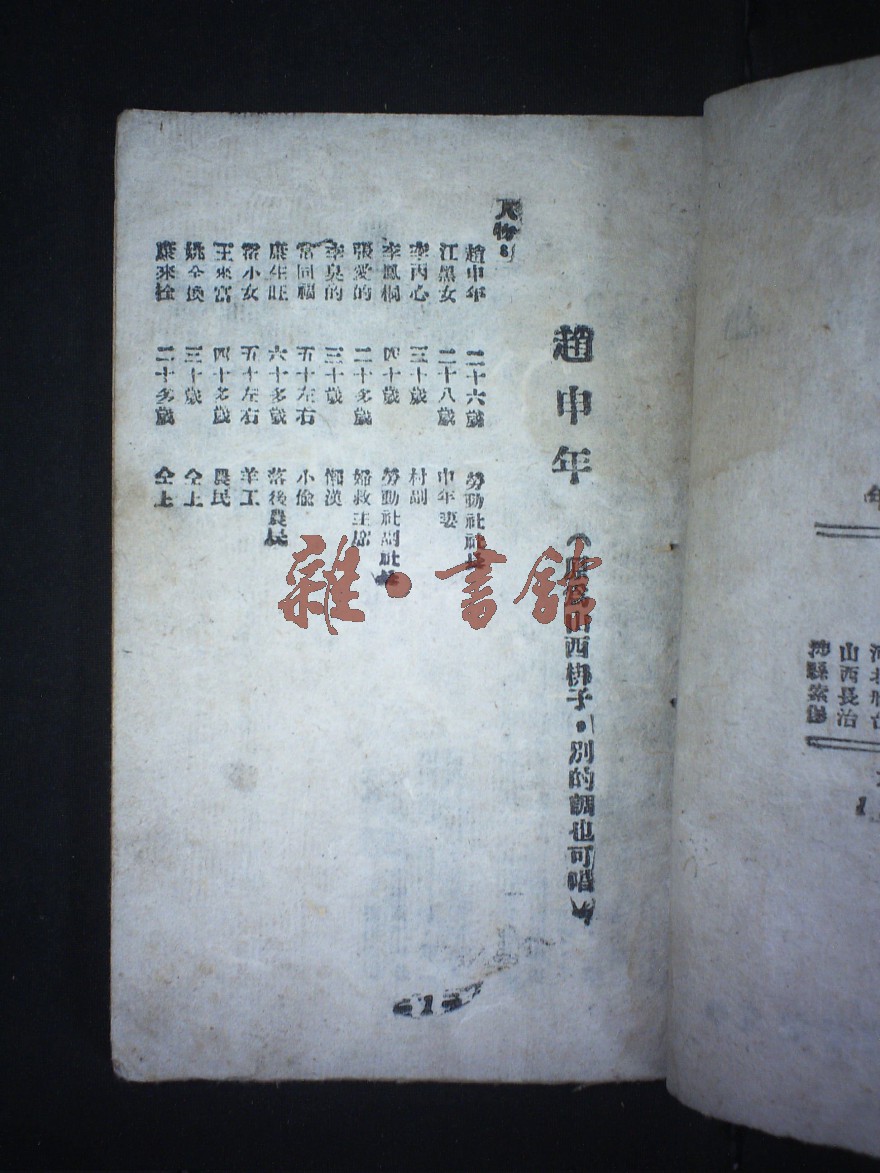 年
河北邢台
山西長治
涉縣索堡
趙申年 山西梆子・別的調也可唱
人物：
趙申年 二十六歲 勞動社社長
江黑女 二十八歲 申年妻
李丙心 三十歲 村副
李鳳桐 四十歲 勞動社副社長
張愛的 二十多歲 婦救主席
李臭的 三十歲 懶漢
常同福 五十左右 小偷
康生旺 六十多歲 落後農民
常小女 五十左右 羊工
王來富 四十多歲 農民
姚全換 三十歲 仝上
康來栓 二十多歲 仝上
1
雜・書館